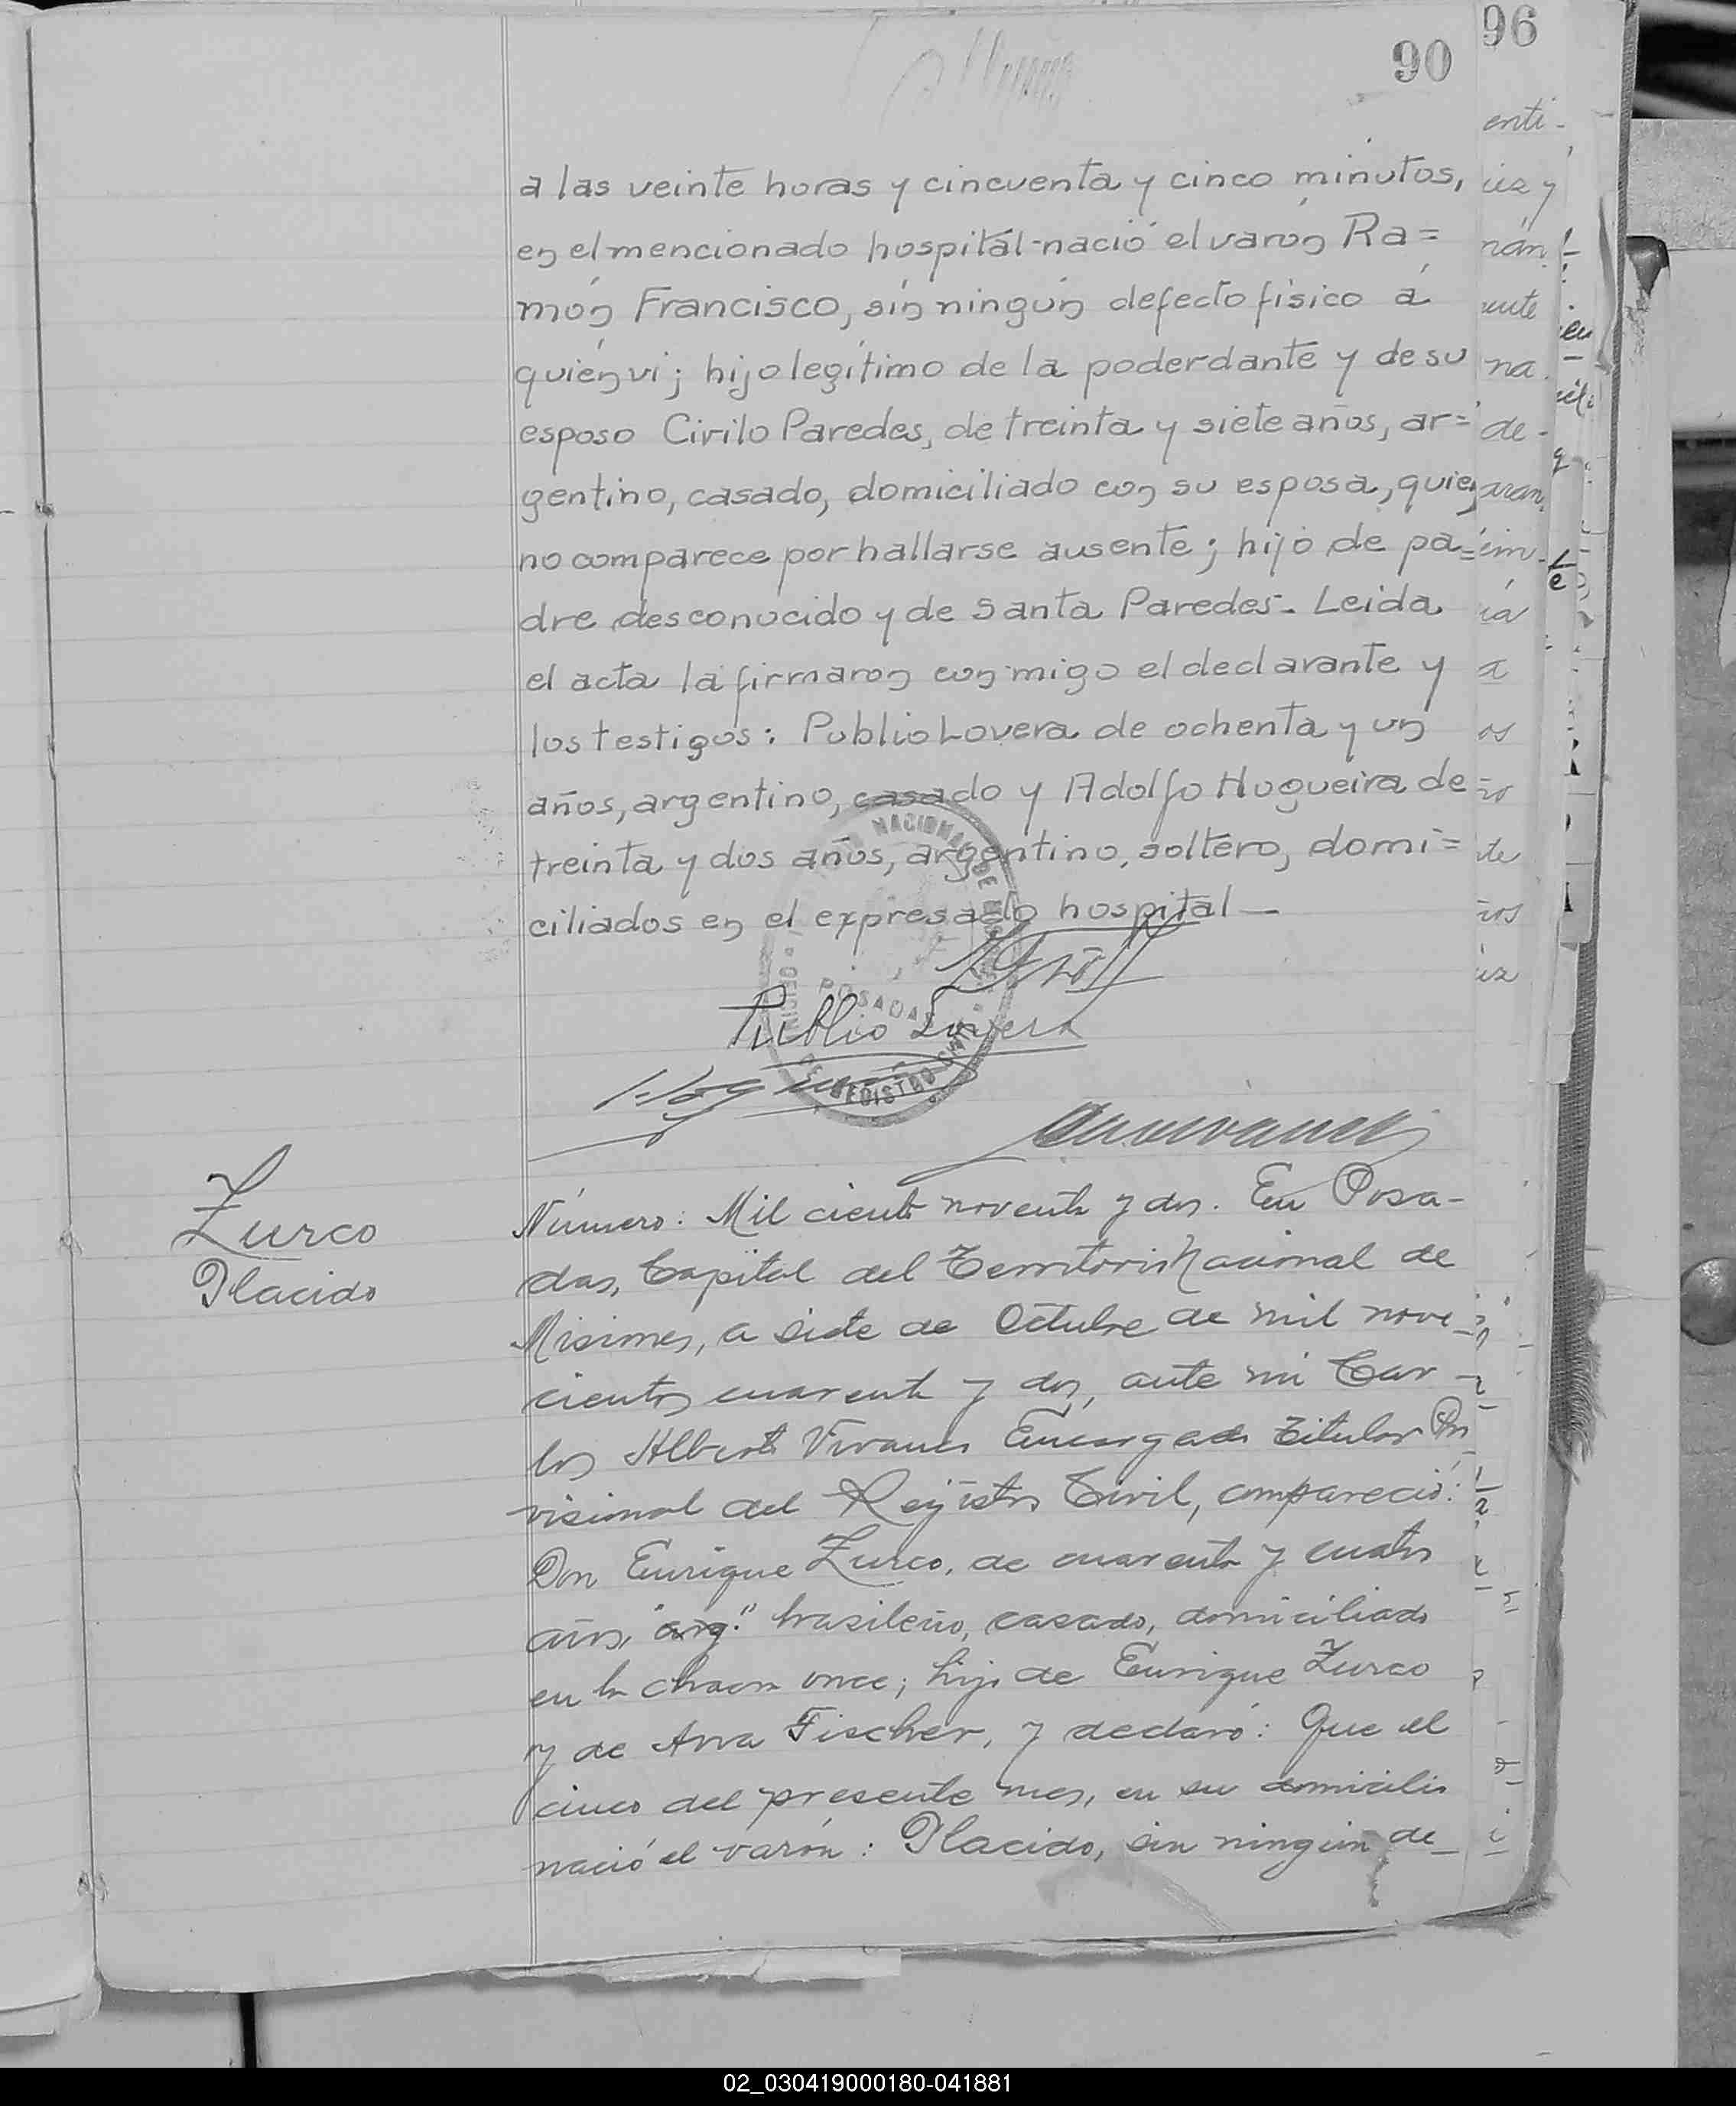 96
90
a las veinte horas y cincuenta y cinco minutos,
en el mencionado hospital-nació el varón Ra=
món Francisco, sin ningún defecto físico á
quién vi; hijo legítimo de la poderdante y de su
esposo Cirilo Paredes, de treinta y siete años, ar=
gentino, casado, domiciliado con su esposa, quien
no comparece por hallarse ausente; hijo de pa=
dre desconocido y de Santa Paredes.- Leida
el acta la firmaron conmigo el declarante y
los testigos: Publio Lovera de ochenta y un
años, argentino, casado y Adolfo Nogueira de
treinta y dos años, argentino, soltero, domi=
ciliados en el expresado hospital —
NACIONAL DE
POSADAS
REGISTRO CIVIL
Publio Lovera
Zurco
Placido
Número: Mil ciento noventa y dos. En Posa-
das, Capital del Territorio Nacional de
Misiones, a siete de Octubre de mil nove_
cientos cuarenta y dos, ante mi Car_
los Alberto Vivanco Encargado Titular Pro
visional del Registro Civil, compareció:
Don Enrique Zurco, de cuarenta y cuatro
años, "arg." brasileño, casado, domiciliado
en la chacra once; hijo de Enrique Zurco
y de Ana Fischer, y declaró: Que el
cinco del presente mes, en su domicilio
nació el varón: Placido, sin ningún de_
02_030419000180-041881